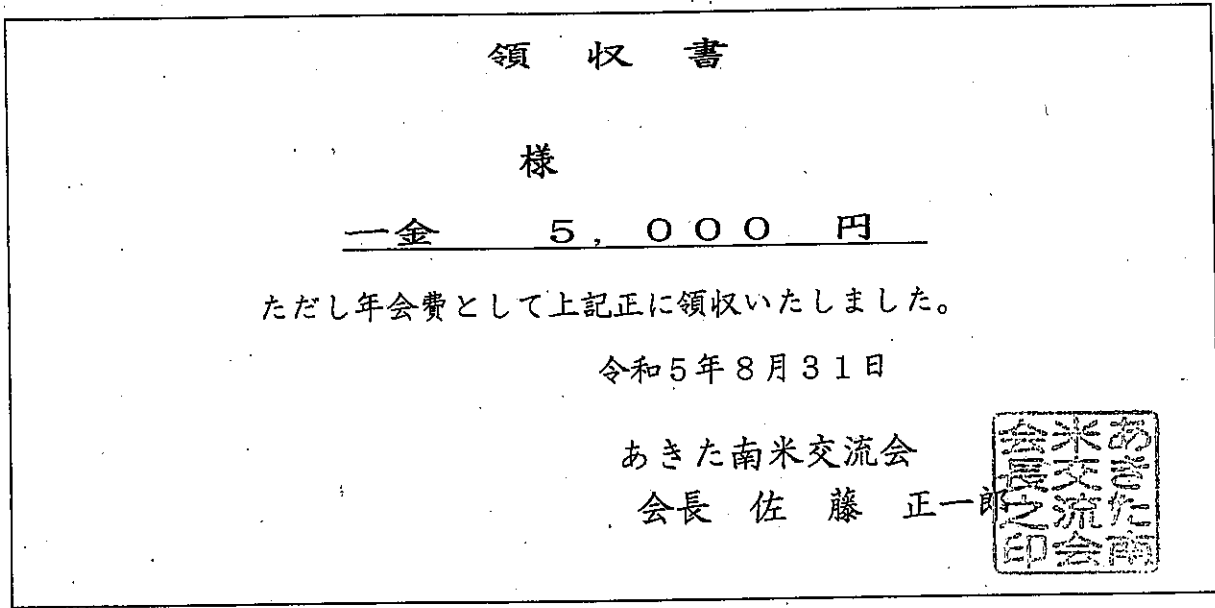 領収書
様
一金 5,000 円
ただし年会費として上記正に領収いたしました。
令和5年8月31日
あきた南米交流会
会長 佐藤 正一郎
あきた南
米交流会
会長之印